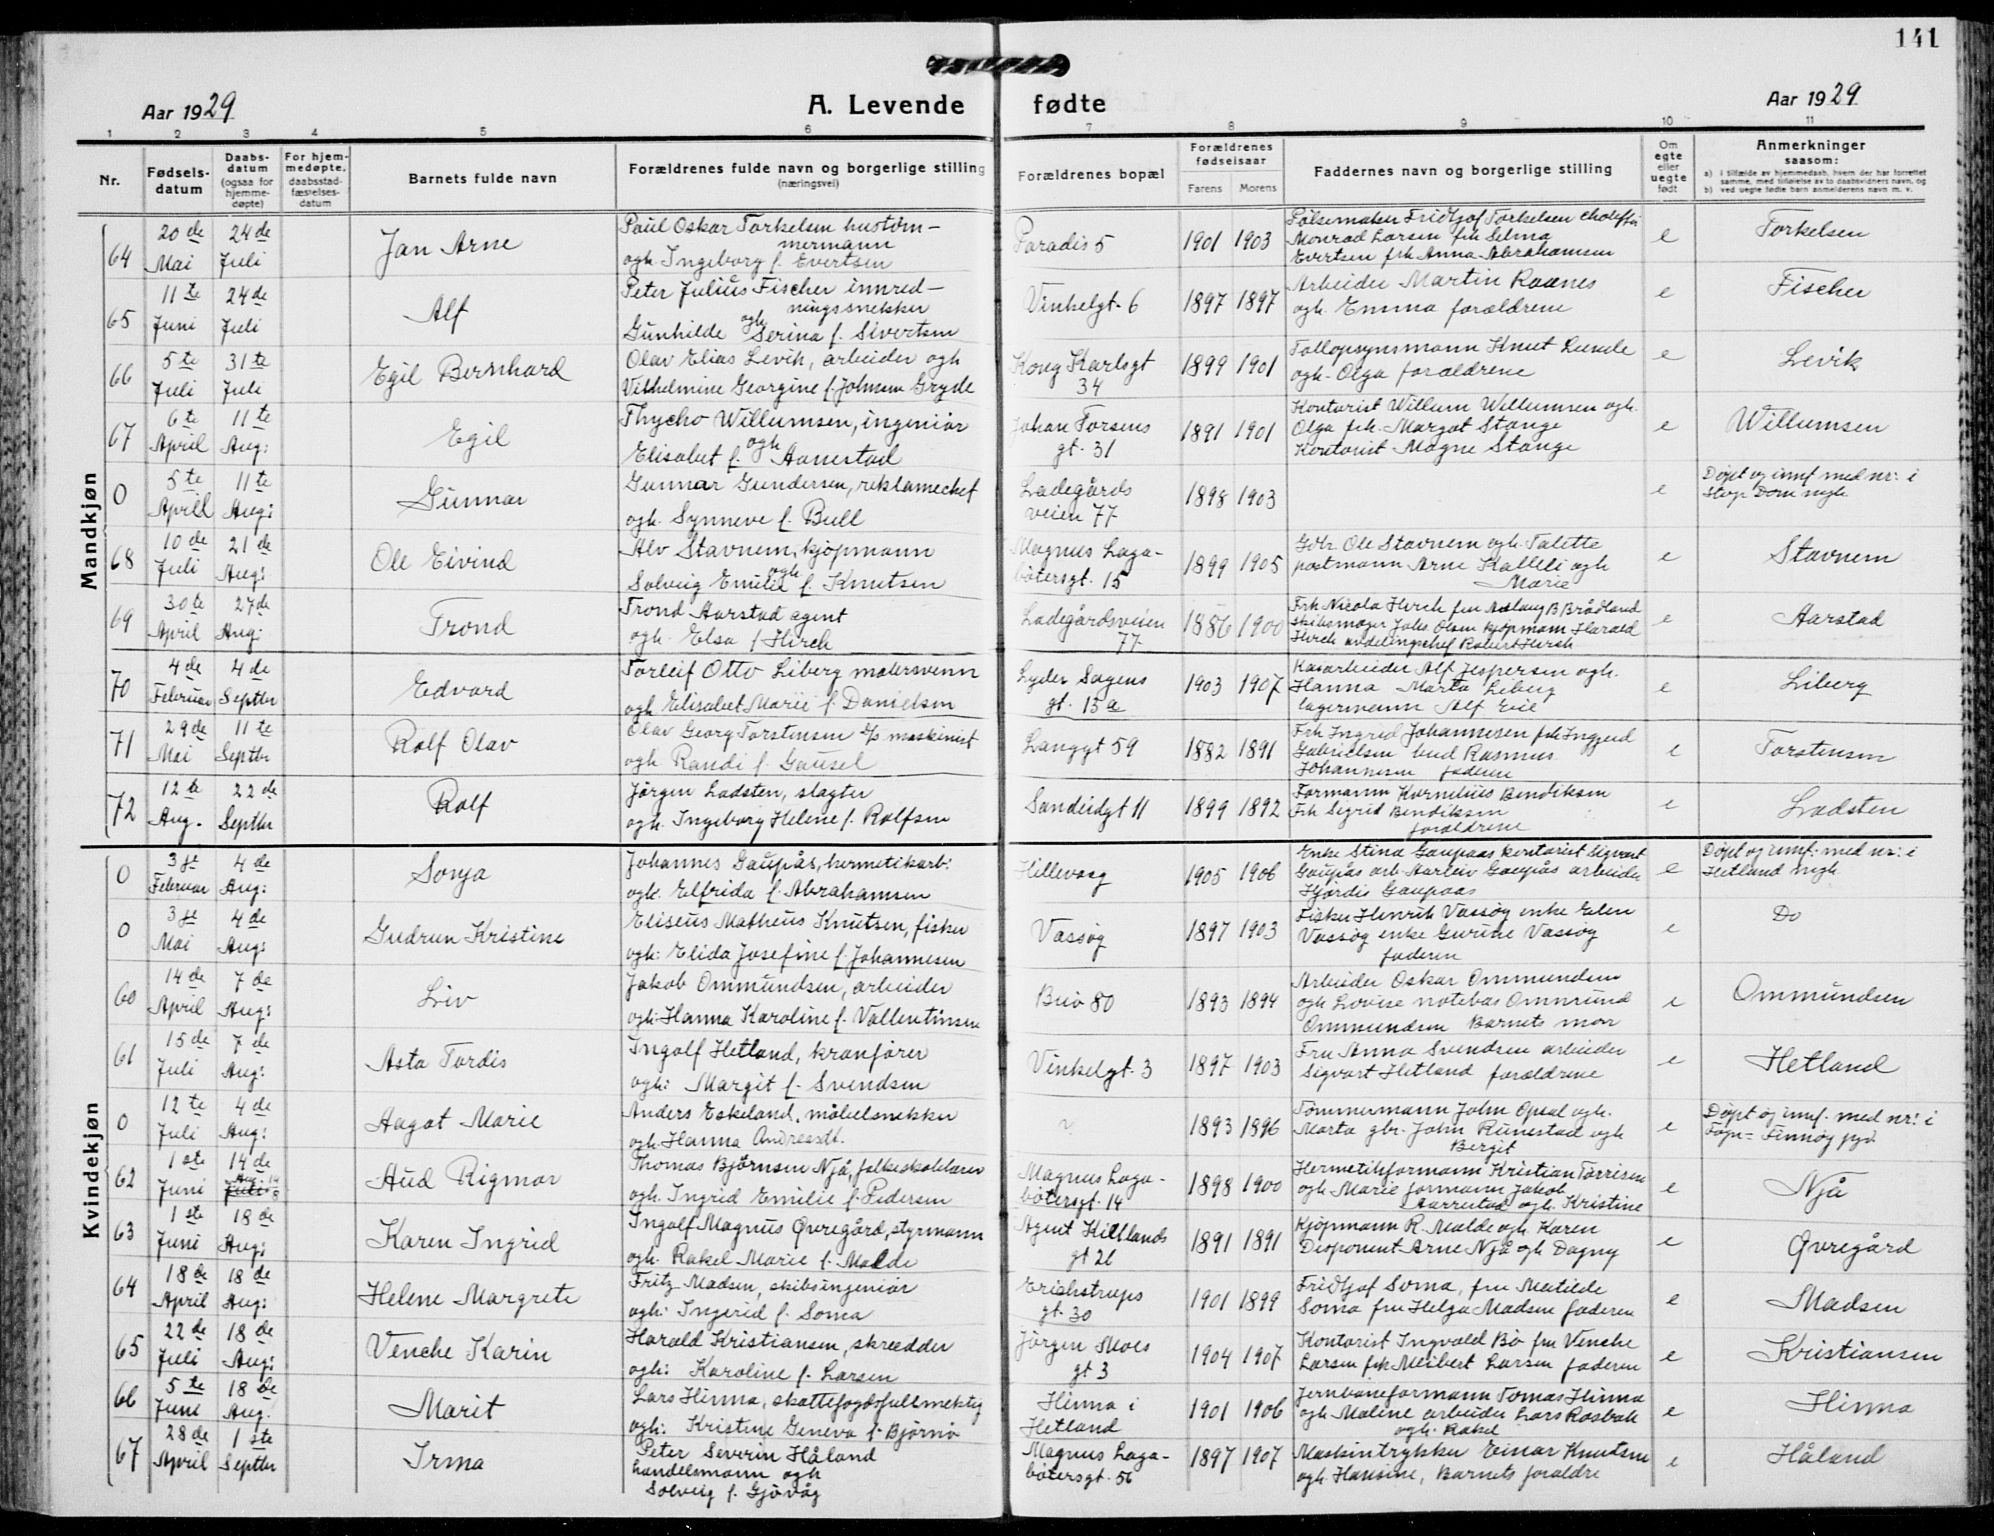 141
Aar 1929
A. Levende fødte
Aar 1929
1 2 3 4 5 6 7 8 9 10 11
Nr.
Fødsels-
datum
Daabs-
datum
(ogsaa for
hjemme-
døpte)
For hjem-
medøpte,
daabsstad-
fæstelses-
datum
Barnets fulde navn
Forældrenes fulde navn og borgerlige stilling
(næringsvei)
Forældrenes bopæl
Forældrenes
fødselsaar
Farens Morens
Faddernes navn og borgerlige stilling
Om
egte
eller
uegte
født
Anmerkninger
saasom:
a) i tilfælde av hjemmedaab, hvem der har forrettet
samme, med tilføielse av to daabsvidners navn, og
b) ved uegte fødte barn anmelderens navn m. v.
Mandkjøn
64 20de Mai 24de Juli Jan Arne
Paul Oskar Torkelsen hustøm-
mermann
ogh. Ingeborg f. Evertsen
Paradis 5 1901 1903
Pølsemaker Fridtjof Torkelsen
Monrad Larsen frk Selma
Evertsen frk Anna Abrahamsen
e Torkelsen
65 11te Juni 24de Juli Alf
Peter Julius Fischer innred-
ningssnekker
ogh
Gunhilde Serina f. Sivertsen
Vinkelgt. 6 1897 1897
Arbeider Martin Raanes
ogh. Emma forældrene
e Fischer
66 5te Juli 31te Juli Egil Bernhard
Olav Elias Levik, arbeider ogh
Vilhelmine Georgine f. Johnsen Gryde
Kong Karlsgt
34 1899 1901
Tollopsynsmann Knut Lunde
ogh. Olga forældrene
e Levik
67 6te April 11te Aug: Egil
Thycho Willumsen, ingeniør
ogh
Elisabet f. Aanestad
Johan Torsens
gt. 31 1891 1901
Kontorist Willum Willumsen ogh.
Olga frk. Margot Stange
Kontorist Magne Stange
e Willumsen
0 5te April 11te Aug: Gunnar
Gunnar Gundersen, reklamechef
ogh. Synneve f. Bull
Ladegårds
veien 77 1898 1903
e Døpt og innf med nr: i
Stvgr Dom mgh.
68 10de Juli 21de Aug: Ole Eivind
Alv Stavnem, kjøpmann
ogh
Solveig Emilie f. Knutsen
Magnus Laga-
bøtersgt. 15 1899 1905
Gbr Ole Stavnem ogh. Talette
postmann Arne Kalleli ogh
Marie
e Stavnem
69 30te April 27de Aug: Trond
Trond Aarstad agent
ogh. Elsa f Hirch
Ladegårdsveien
77 1886 1900
Frk Nicola Hirch fru Aslaug B Brådland
skibsmægler Johs Olsen kjøpmann Harald
Hirch avdelingschef Robert Hirch
e Aarstad
70 4de Februar 4de Septbr Edvard
Torleif Otto Liberg malersvenn
ogh Elisabet Marie f. Danielsen
Lyder Sagens
gt. 15a 1903 1907
Kaiarbeider Alf Jespersen ogh.
Hanna Marta Liberg
lagermann Alf Eie
e Liberg
71 29de Mai 11te Septbr Rolf Olav
Olav Georg Torstensen d/s maskinist
ogh Randi f. Gausel
Langgt 59 1882 1891
Frk Ingrid Johannesen frk Ingjerd
Gabrielsen bud Rasmus
Johannesen faderen
e Torstensen
72 12te Aug. 22de Septbr Rolf
Jørgen Ladsten, slagter
ogh. Ingeborg Helene f. Rolfsen
Sandeidgt 11 1899 1892
Formann Kornelius Bendiksen
Frk Sigrid Bendiksen
forældrene
e Ladsten
Kvindekjøn
0 3je Februar 4de Aug: Sonja
Johannes Gaupås, hermetikarb:
ogh. Elfrida f. Abrahamsen
Hillevaag 1905 1906
Enke Stina Gaupaas kontorist Sigvart
Gaupås arb Aarleiv Gaupås arbeider
Hjørdis Gaupaas
e Døpt og innf: med nr: i
Hetland mgh
0 3je Mai 4de Aug: Gudrun Kristine
Eliseus Matheus Knutsen, fisker
ogh: Elida Josefine f. Johannesen
Vassøy 1897 1903
Fisker Henrik Vassøy enke Elen
Vassøy enke Gurine Vassøy
faderen
e Do
60 14de April 7de Aug: Liv
Jakob Ommundsen, arbeider
ogh: Hanna Karoline f. Vallentinsen
Buø 80 1893 1894
Arbeider Oskar Ommundsen
ogh Lovise notebas Ommund
Ommundsen Barnets mor
e Ommundsen
61 15de Juli 7de Aug: Asta Tordis
Ingolf Hetland, kranfører
ogh: Margit f. Svendsen
Vinkelgt. 3 1897 1903
Fru Anna Svendsen arbeider
Sigvart Hetland forældrene
e Hetland
0 12te Juli 4de Aug: Aagot Marie
Anders Eskeland, møbelsnekker
ogh. Hanna Andreasdt.
? 1893 1896
Tømmermann John Opsal ogh.
Marta gbr. John Runestad ogh
Bergit
e Døpt og innf. med nr: i
Fogn = Finnøy pgd.
62 1ste Juni 14de Juli Aug. 14/8 Aud Rigmor
Thomas Bjørnsen Njå, folkeskolelærer
ogh. Ingrid Emilie f. Pedersen
Magnus Laga-
bøtersgt. 14 1898 1900
Hermetikformann Kristian Tørrisen
ogh Marie formann Jakob
Aarrestad ogh. Kristine
e Njå
63 1ste Juni 18de Aug: Karen Ingrid
Ingolf Magnus Øvregård, styrmann
ogh. Rakel Marie f. Malde
Agent Kiellands
gt 26 1891 1891
Kjøpmann R. Malde ogh. Karen
Disponent Arne Njå ogh Dagny
e Øvregård
64 18de April 18de Aug: Helene Margrete
Fritz Madsen, skibsingeniør
ogh: Ingerid f. Soma
Erichstrups
gt. 30 1901 1899
Fridtjof Soma, fru Matilde
Soma fru Helga Madsen faderen
e Madsen
65 22de Juli 18de Aug: Venche Karin
Harald Kristiansen, skrædder
ogh: Karoline f. Larsen
Jørgen Moes
gt 3 1904 1907
Kontorist Ingvald Bø fru Venche
Larsen frk Meibert Larsen faderen
e Kristiansen
66 5te Juni 18de Aug. Marit
Lars Hinna, skattefogdsfullmektig
ogh: Kristine Geneva f. Bjørnø
Hinna i
Hetland 1901 1906
Jernbaneformann Tomas Hinna
ogh Maline arbeider Lars Rosbak
ogh. Rakel
e Hinna
67 28de April 1ste Septbr Irma
Peter Severin Håland
handelsmann ogh
Solveig f. Gjøvåg
Magnus Laga-
bøtersgt. 56 1897 1907
Maskintrykker Einar Knutsen
ogh. Hansine, Barnets foraldre
e Håland